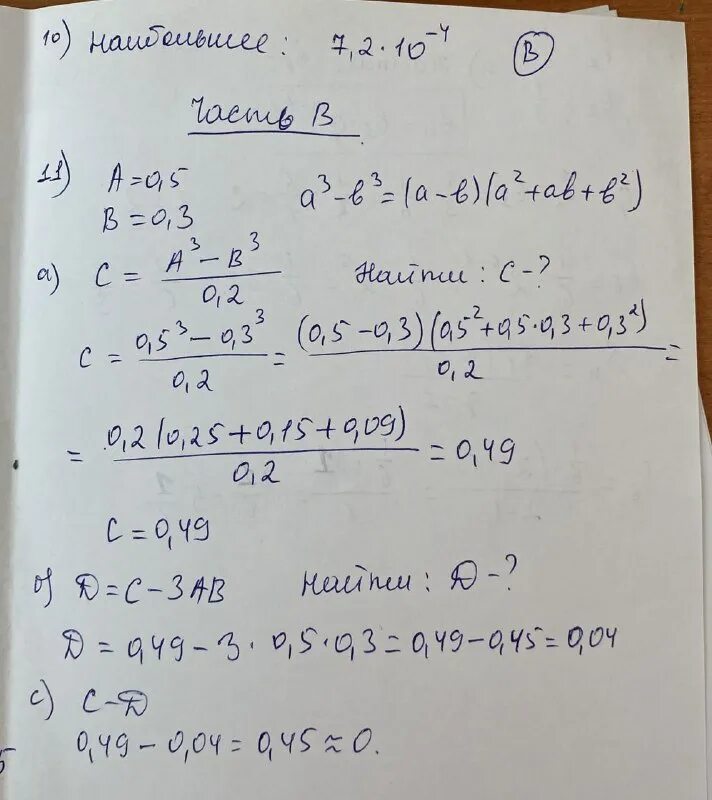 10) Наибольшее: 7,2·10⁻⁴ (В)
Часть В
11) A=0,5
a³-в³=(a-в)(a²+ab+в²)
B=0,3
а) C = (A³-B³)/0,2 Найти: C-?
C = (0,5³-0,3³)/0,2 = ((0,5-0,3)(0,5²+0,5·0,3+0,3²))/0,2 =
= (0,2(0,25+0,15+0,09))/0,2 = 0,49
C=0,49
б) Д=C-3AB Найти: Д-?
Д = 0,49-3·0,5·0,3=0,49-0,45=0,04
с) C-Д
0,49-0,04=0,45≈0.
5